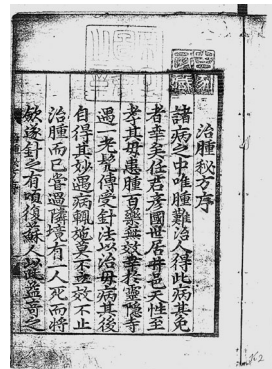 治腫秘方序
諸病之中唯腫難治人得此病其免
者幸矣任君彦國世居井邑天性至
孝其母患腫百藥無效幸於靈隱寺
遇一老髡得受針法以治母病其後
自得其妙遇病輒施莫不立效不止
治腫而已嘗過隣境有一人死而將
欲逐針之有頃復蘇人以此益奇之
162